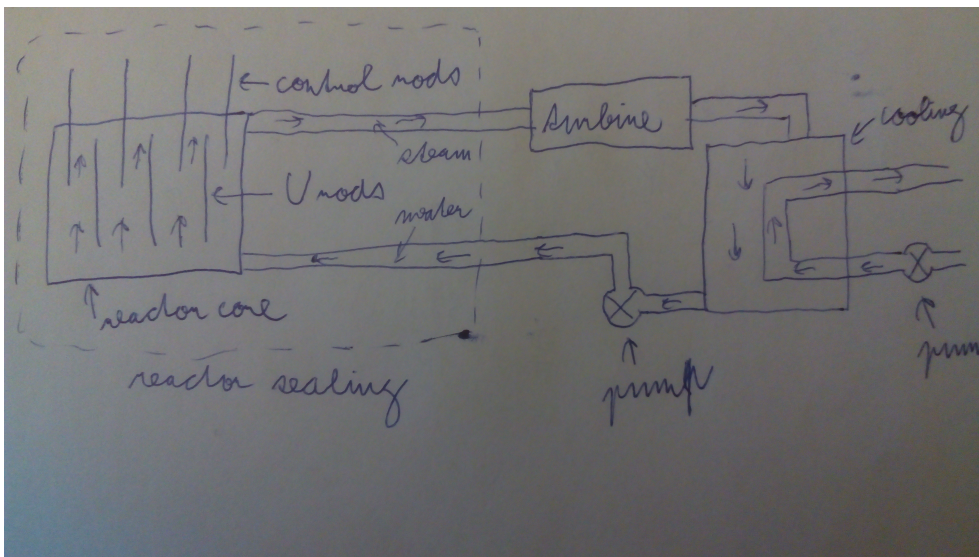 control rods
turbine
cooling
steam
U rods
water
reactor core
reactor sealing
pump
pump